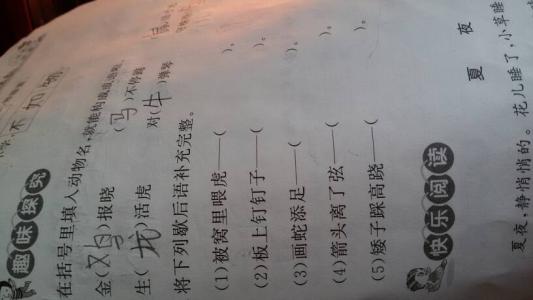 不如
趣味探究
在括号里填入动物名,就能构成成语啦。
金(鸡)报晓 (马)不停蹄
生(龙)活虎 对(牛)弹琴
将下列歇后语补充完整。
(1)被窝里喂虎——( )。
(2)板上钉钉子——( )。
(3)画蛇添足——( )。
(4)箭头离了弦——( )。
(5)矮子踩高跷——( )。
快乐阅读
夏夜
夏夜,静悄悄的。花儿睡了,小草睡